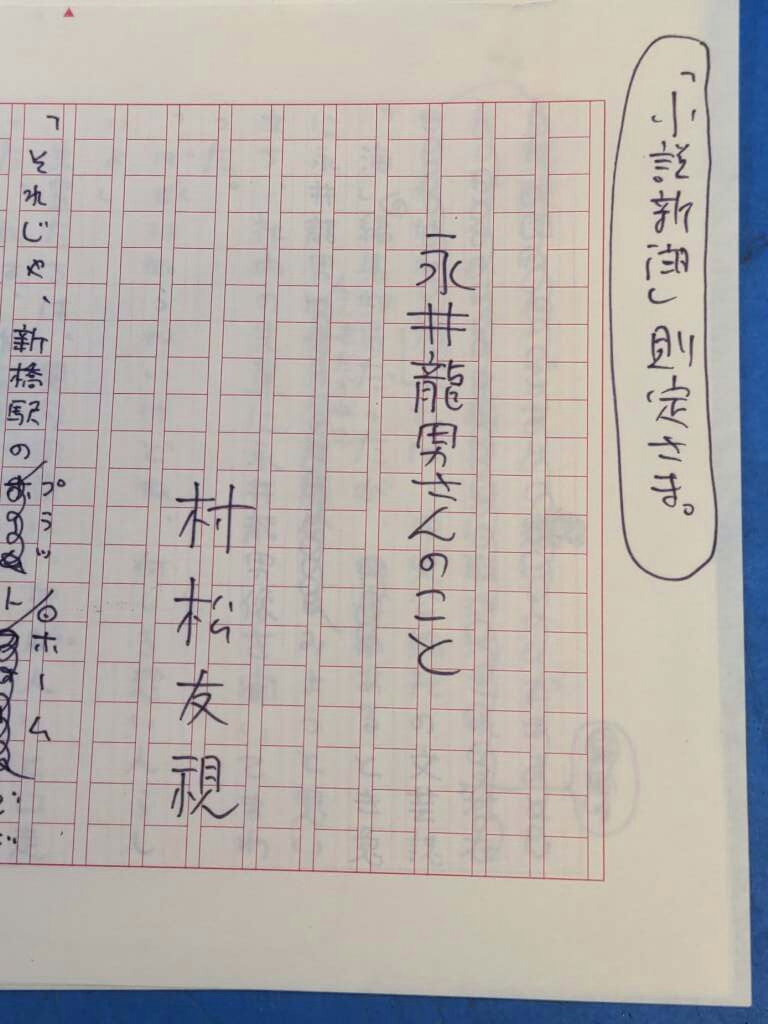 「小説新潮」則定さま。
永井龍男さんのこと
村松友視
「それじゃ、新橋駅の
プラッ
ホーム